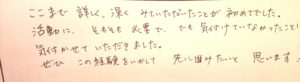 ここまで 詳しく、深く みていただいたことが 初めてでした。
活動に、そもそも 必要で、でも 気付けていなかったこと!
気付かせて いただきました。
ぜひ この経験をいかして 先に進みたいと 思います。